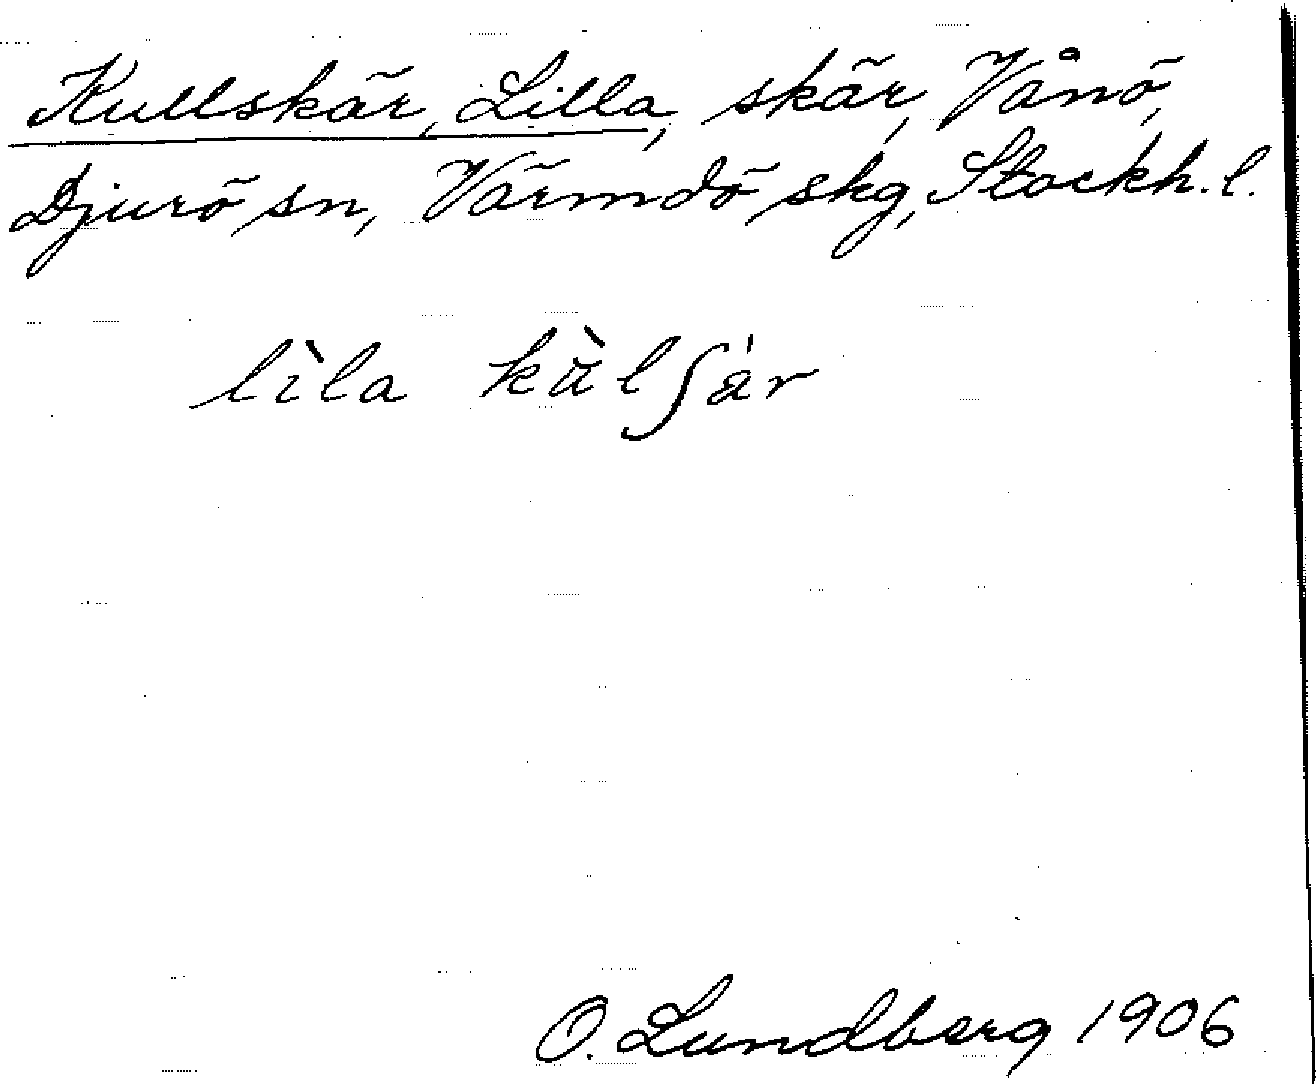 Kullskär, Lilla, skär, Vånö,
Djurö sn, Värmdö skg, Stockh. l.
lìla kùlʃár
O. Lundberg 1906